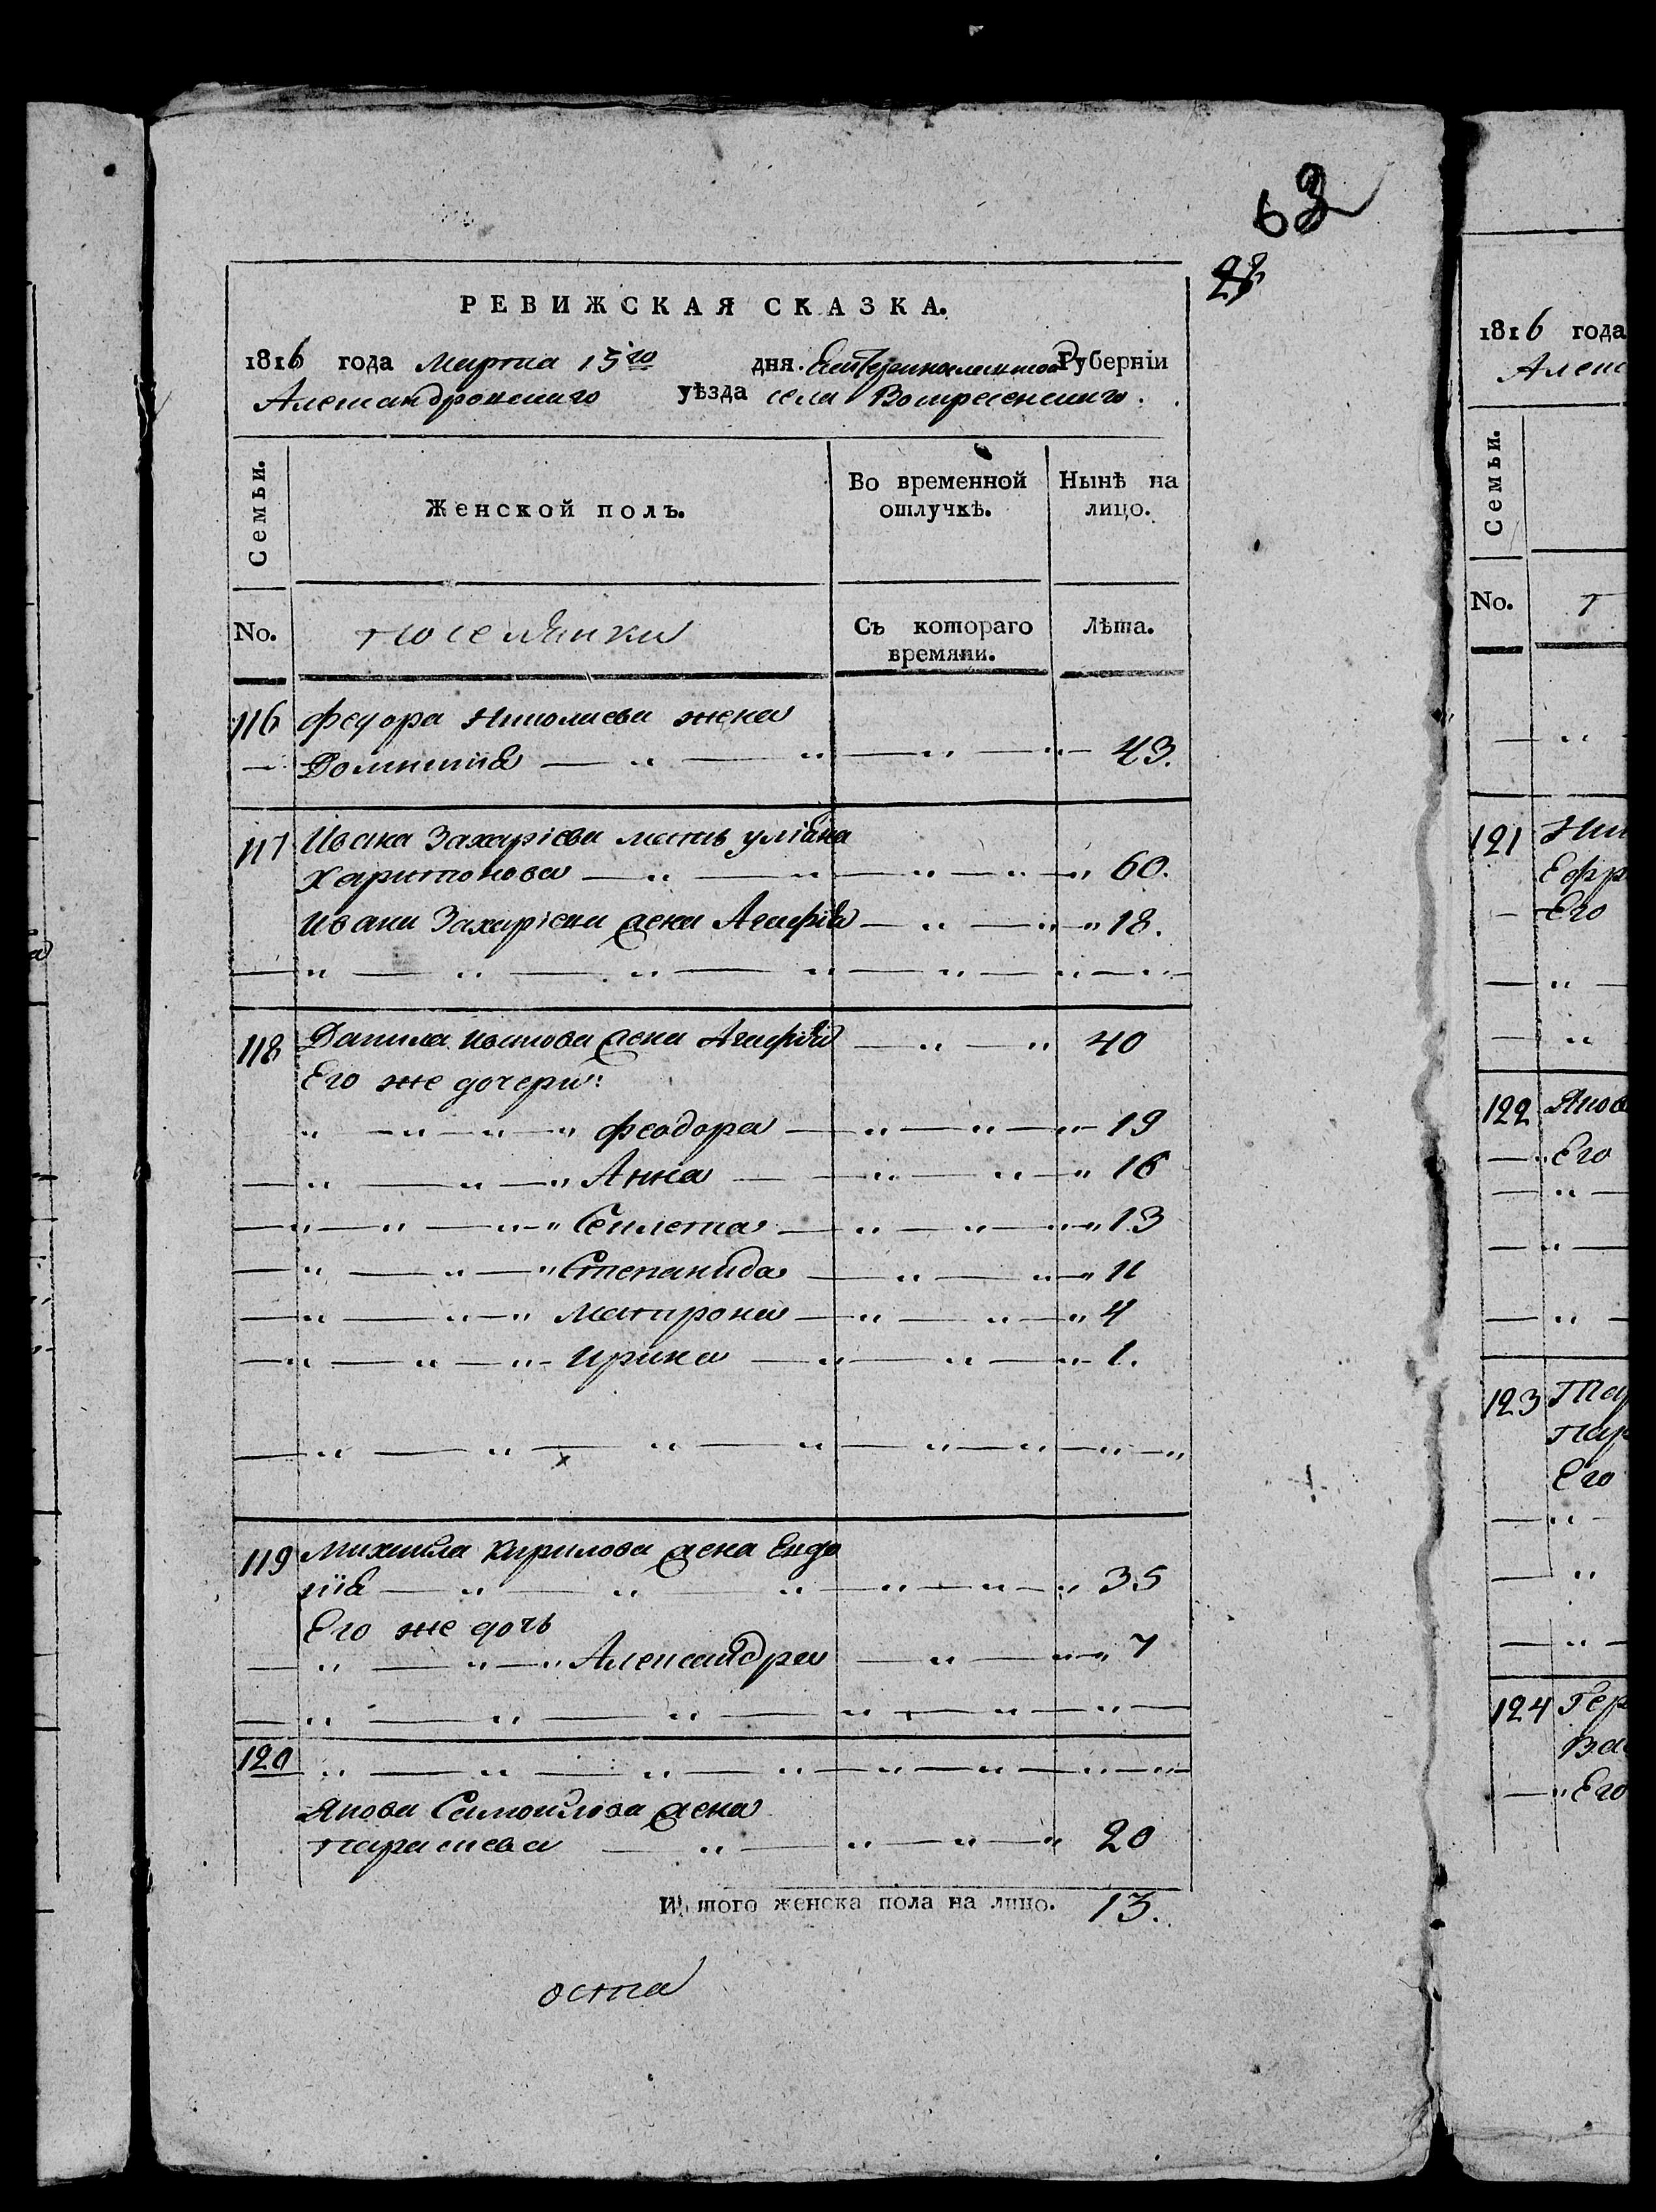 63
28
РЕВИЖСКАЯ СКАЗКА.
1816 года Марта 15го дня. Екатеринославской Губерніи
Александровскаго уѣзда села Воскресенскаго.
Семьи.
Женской полъ.
Во временной отлучкѣ.
Нынѣ на лицо.
No.
поселянки
Съ котораго времяни.
Лѣта.
116 Федора Николаева жена
Домникія 43.
117 Ивана Захаріева мать уліана
Харитонова 60.
Ивана Захаріева жена Агафія 18.
118 Данила Иванова жена Агафія 40
Его же дочери:
Феодора 19
Анна 16
Степанида 11
Матрона 4
Ирина 1.
119 Михаила Кирилова жена Евдо
кія 35
Его же дочь
Александра 7
120
Якова Самойлова жена
Параскева 20
Итого женска пола на лицо. 13.
1816 года
Алекс
Семьи.
No.
121
Ефр
Его
122 Яков
Его
123
Пар
Его
124
Его